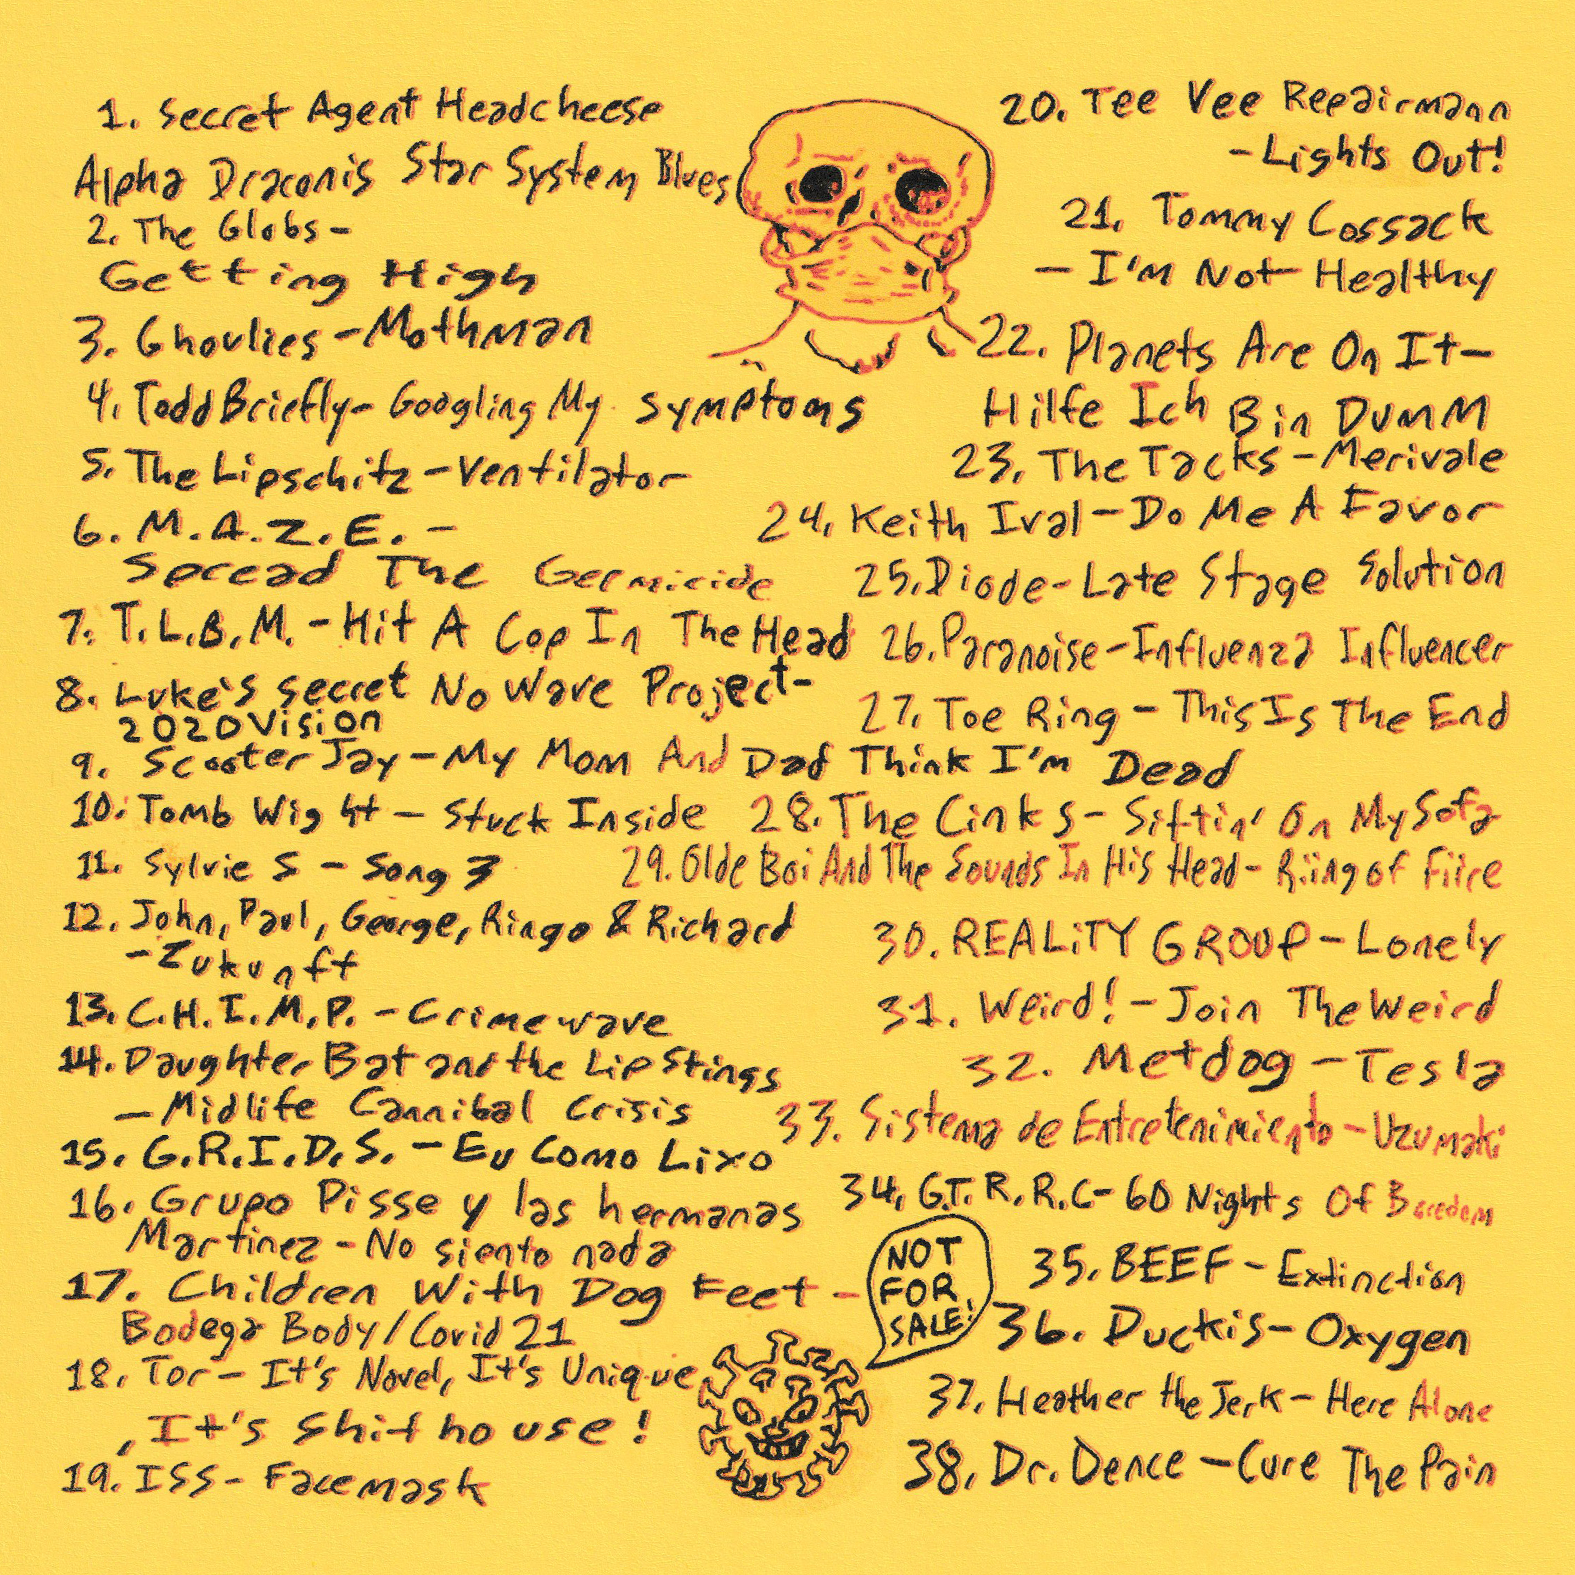 1. Secret Agent Headcheese
Alpha Draconis Star System Blues
2. The Globs -
Getting High
3. Ghoulies - Mothman
4. Todd Briefly - Googling My symptoms
5. The Lipschitz - Ventilator
6. M.A.Z.E. -
Spread The Germicide
7. T.L.B.M. - Hit A Cop In The Head
8. Luke's secret No Wave Project -
2020 Vision
9. Scooter Jay - My Mom And Dad Think I'm Dead
10. Tomb Wight - Stuck Inside
11. Sylvie S - Song 3
12. John, Paul, George, Ringo & Richard
- Zukunft
13. C.H.I.M.P. - Crimewave
14. Daughter Bat and the Lip Stings
- Midlife Cannibal Crisis
15. G.R.I.D.S. - Eu Como Lixo
16. Grupo Pisse y las hermanas
Martinez - No siento nada
17. Children With Dog Feet -
Bodega Body/Covid 21
18. Tor - It's Novel, It's Unique
, It's shithouse!
19. ISS - Facemask
20. Tee Vee Repairmann
- Lights Out!
21. Tommy Cossack
- I'm Not Healthy
22. Planets Are On It -
Hilfe Ich Bin DUMM
23. The Tacks - Merivale
24. Keith Ival - Do Me A Favor
25. Diode - Late Stage Solution
26. Paranoise - Influenza Influencer
27. Toe Ring - This Is The End
28. The Cinks - Sittin' On My Sofa
29. Olde Boi And The Sounds In His Head - Riing of Fiire
30. REALiTY GROUP - Lonely
31. Weird! - Join The Weird
32. Metdog - Tesla
33. Sistema de Entretenimiento - Uzumaki
34. G.T.R.R.C - 60 Nights Of Boredom
35. BEEF - Extinction
36. Duckis - Oxygen
37. Heather the Jerk - Here Alone
38. Dr. Dence - Cure The Pain
NOT
FOR
SALE!